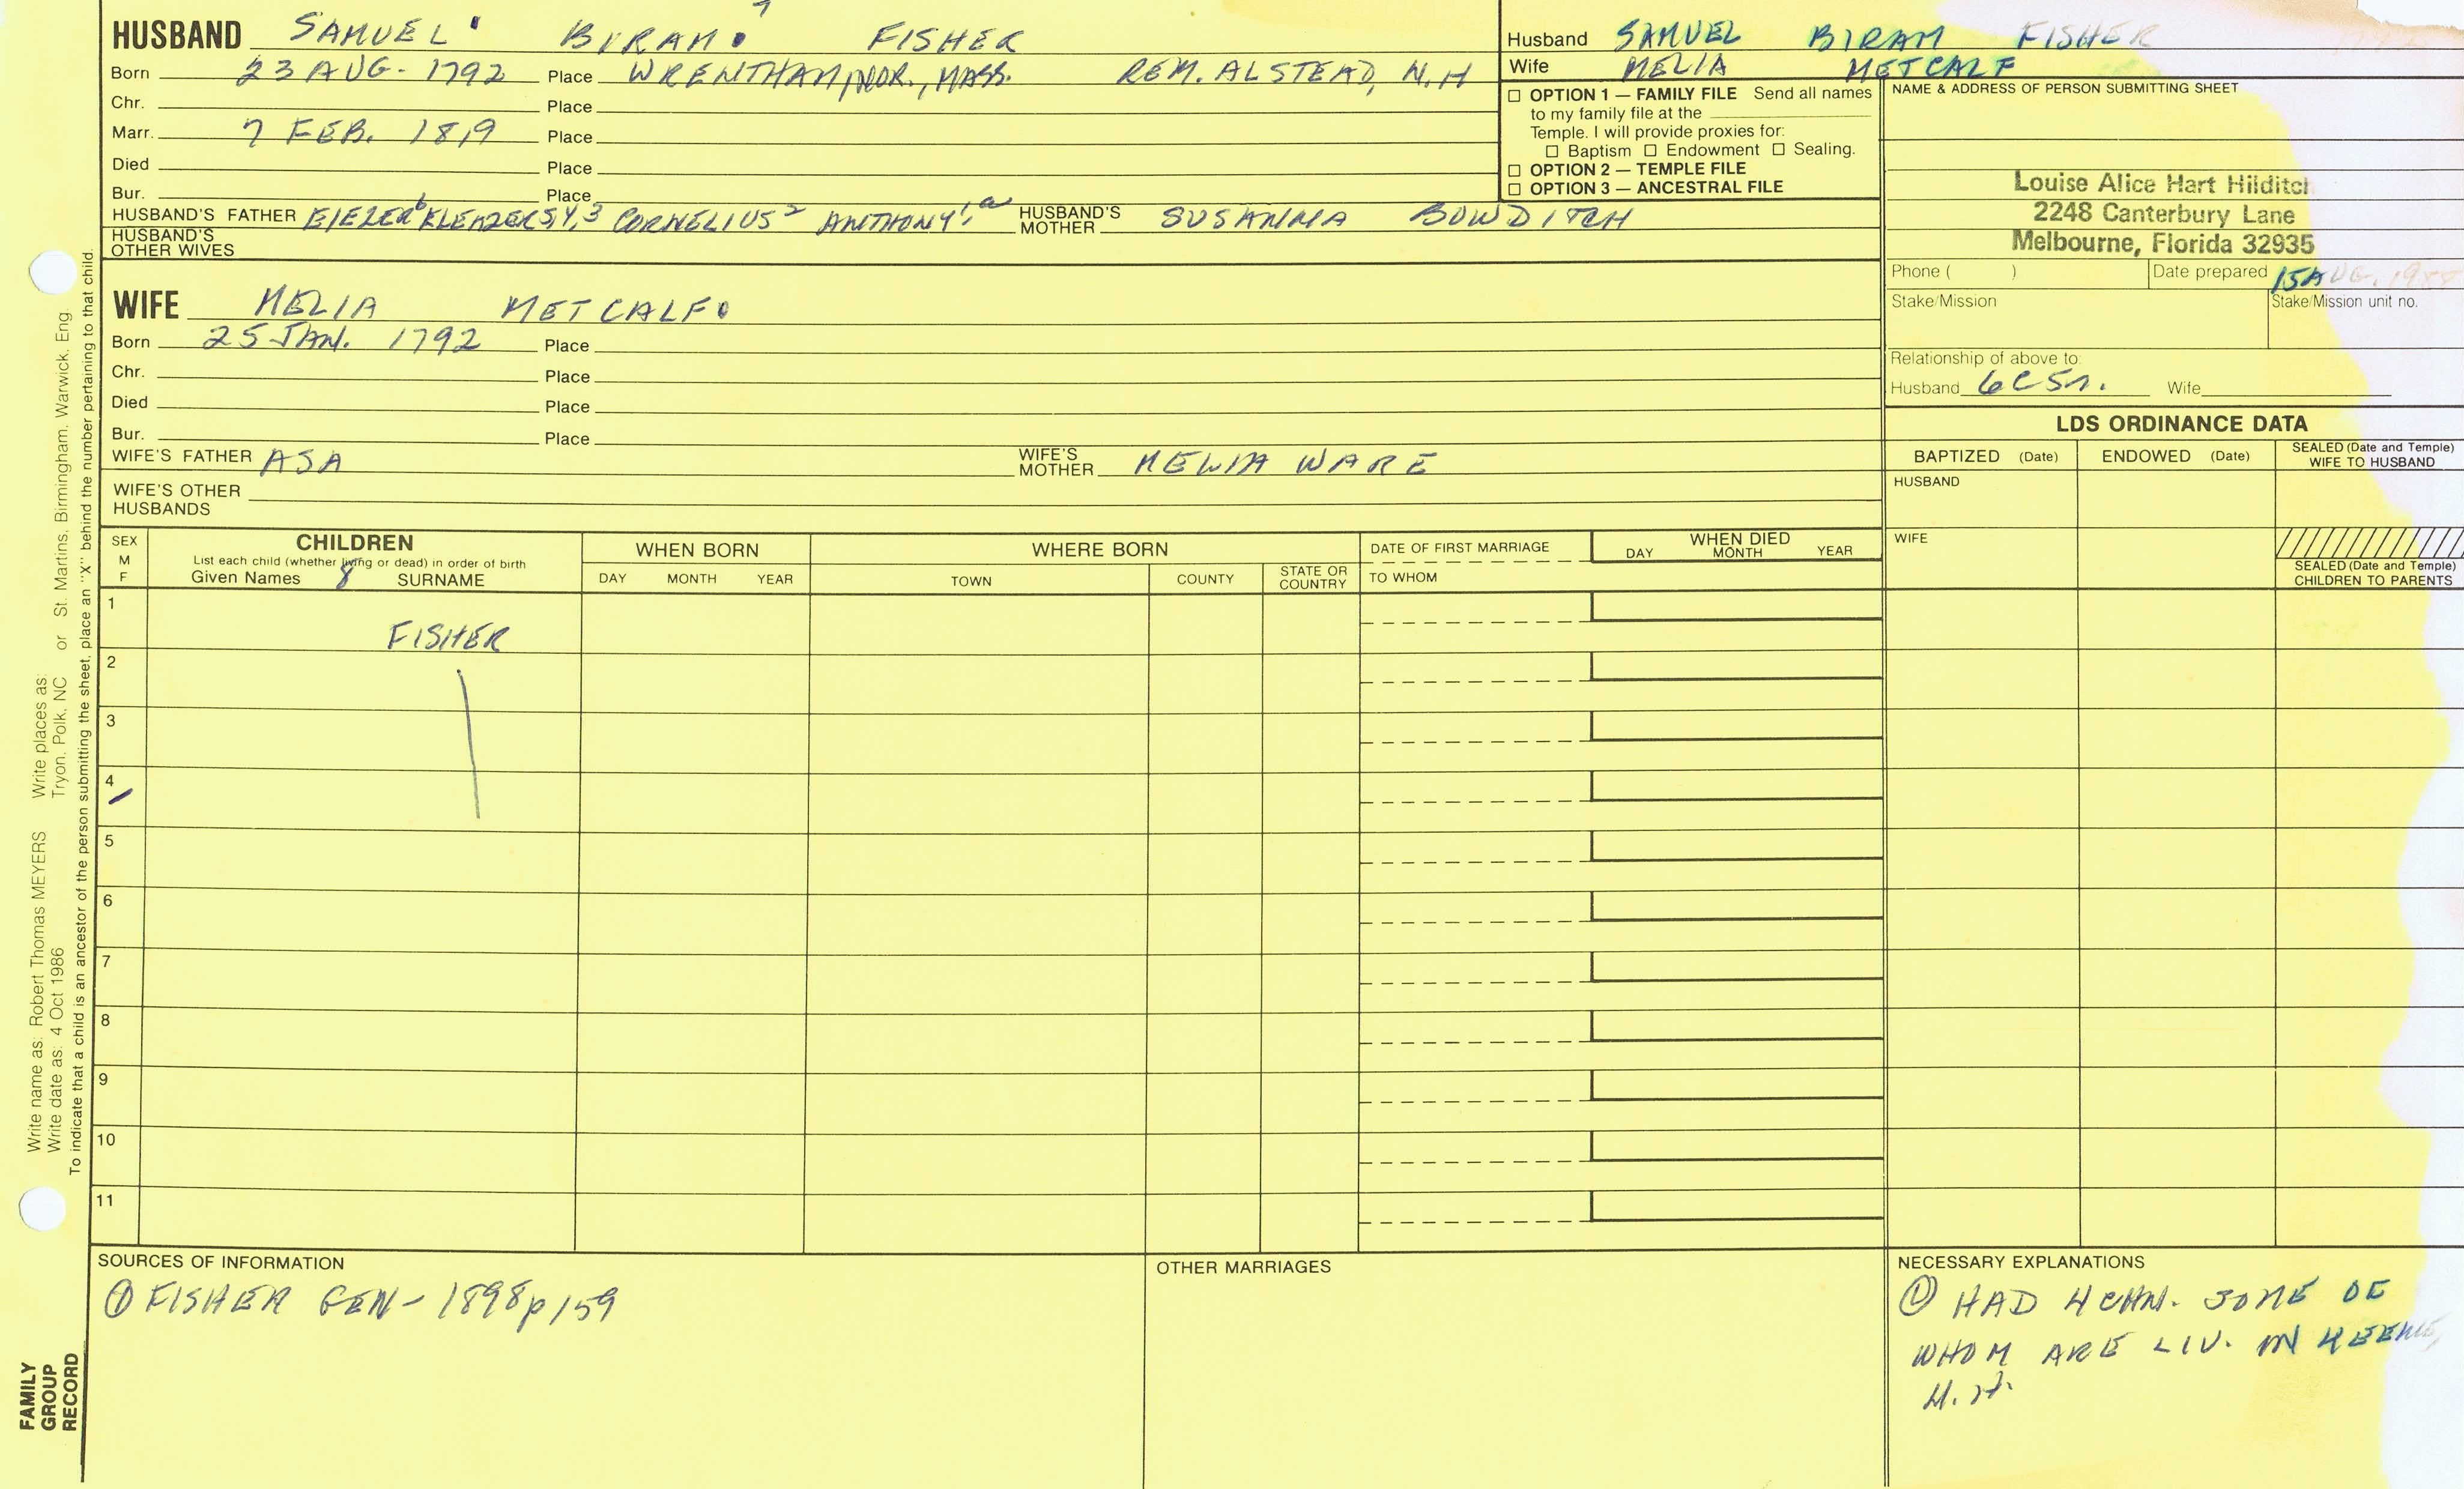 HUSBAND SAMUEL BIRAM 7 FISHER
Born 23 AUG. 1792 Place WRENTHAM, NOR., MASS. REM. ALSTEAD, N.H
Chr. Place
Marr. 7 FEB. 1819 Place
Died Place
Bur. Place
HUSBAND'S FATHER ELEZER6 ELEAZER5,4,3 CORNELIUS2 ANTHONY1,a HUSBAND'S MOTHER SUSANNA BOWDITCH
HUSBAND'S OTHER WIVES
WIFE MELIA METCALF
Born 25 JAN. 1792 Place
Chr. Place
Died Place
Bur. Place
WIFE'S FATHER ASA WIFE'S MOTHER MELIA WARE
WIFE'S OTHER HUSBANDS
Husband SAMUEL BIRAM FISHER
Wife MELIA METCALF
☐ OPTION 1 — FAMILY FILE Send all names
to my family file at the
Temple. I will provide proxies for:
☐ Baptism ☐ Endowment ☐ Sealing.
☐ OPTION 2 — TEMPLE FILE
☐ OPTION 3 — ANCESTRAL FILE
NAME & ADDRESS OF PERSON SUBMITTING SHEET
Louise Alice Hart Hilditch
2248 Canterbury Lane
Melbourne, Florida 32935
Phone ( ) Date prepared 15 AUG. 1988
Stake/Mission Stake/Mission unit no.
Relationship of above to:
Husband 6C5R. Wife
LDS ORDINANCE DATA
BAPTIZED (Date) ENDOWED (Date) SEALED (Date and Temple) WIFE TO HUSBAND
HUSBAND
WIFE
SEALED (Date and Temple) CHILDREN TO PARENTS
SEX M F
CHILDREN
List each child (whether living or dead) in order of birth
Given Names 8 SURNAME
WHEN BORN
DAY MONTH YEAR
WHERE BORN
TOWN COUNTY STATE OR COUNTRY
DATE OF FIRST MARRIAGE
TO WHOM
WHEN DIED
DAY MONTH YEAR
1 FISHER
2
3
4
5
6
7
8
9
10
11
SOURCES OF INFORMATION
① FISHER GEN - 1898 p159
OTHER MARRIAGES
NECESSARY EXPLANATIONS
① HAD 4 CHN. SOME OF
WHOM ARE LIV. IN KEENE,
N.H.
Write name as: Robert Thomas MEYERS Write places as:
Write date as: 4 Oct 1986 Tryon, Polk, NC or St. Martins, Birmingham, Warwick, Eng.
To indicate that a child is an ancestor of the person submitting the sheet, place an "X" behind the number pertaining to that child.
FAMILY
GROUP
RECORD